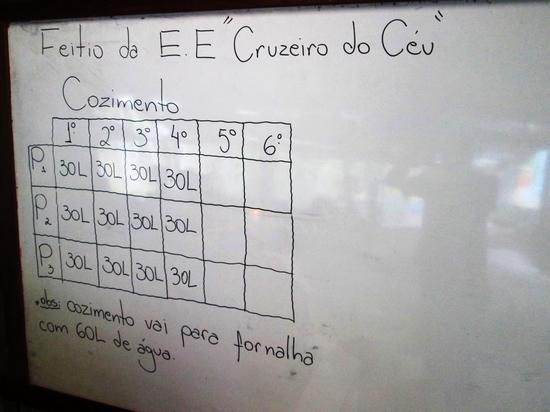 Feitio da E.E "Cruzeiro do Céu"
Cozimento
1º 2º 3º 4º 5º 6º
P1 30L 30L 30L 30L
P2 30L 30L 30L 30L
P3 30L 30L 30L 30L
•obs: cozimento vai para fornalha
com 60L de água.